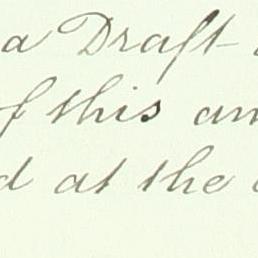 a Draft
of this am
d at the